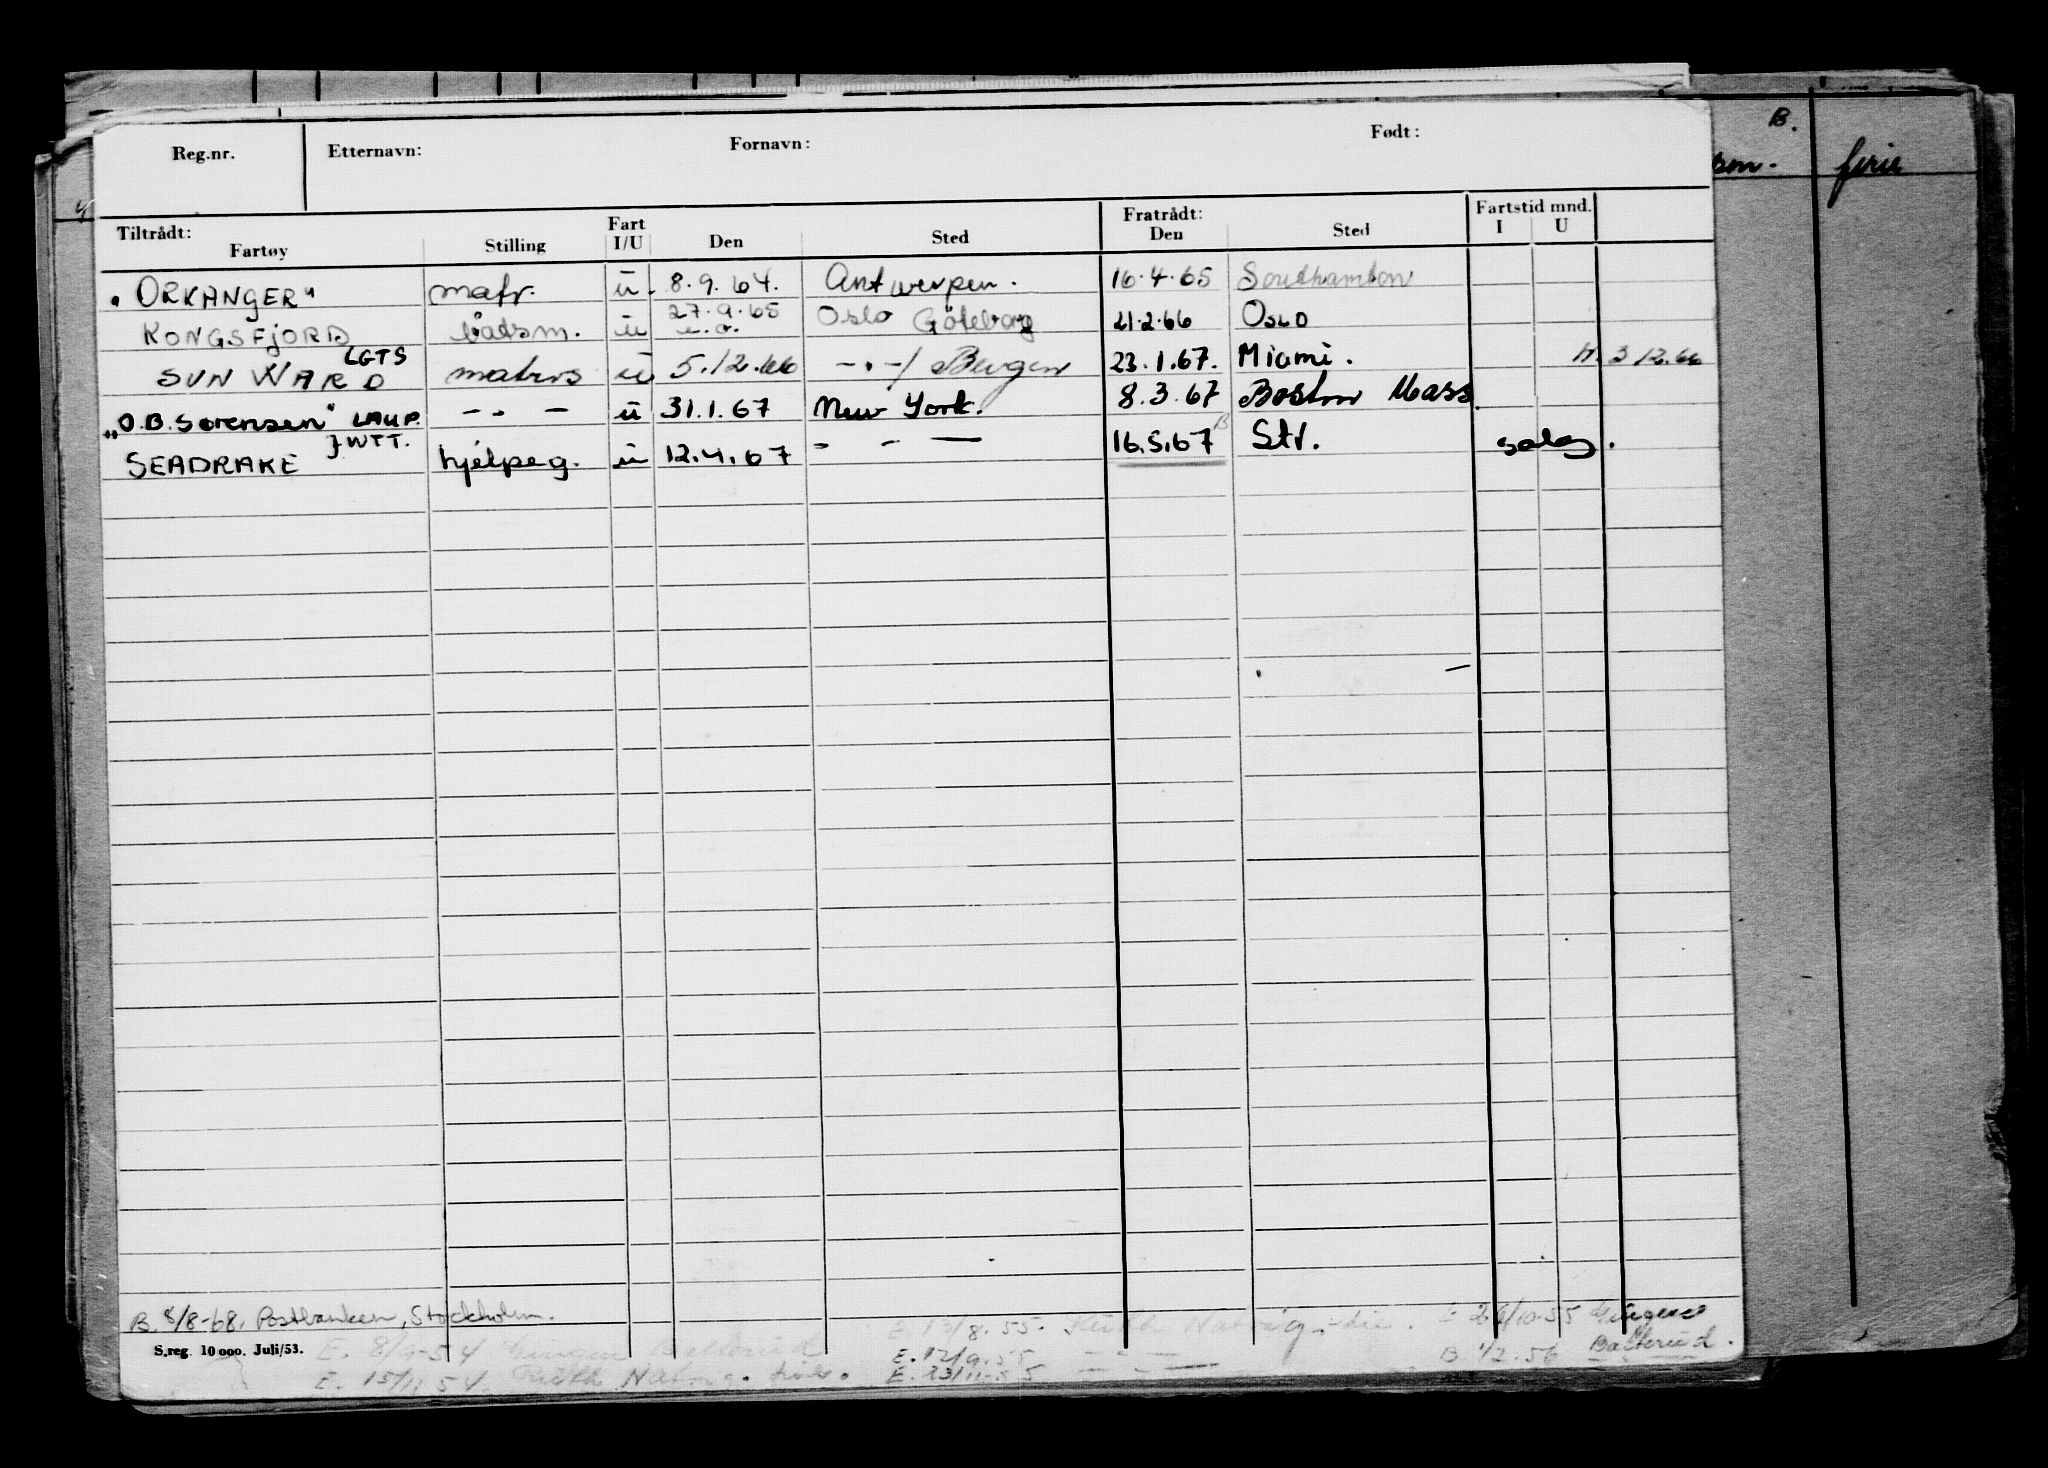 Reg.nr. Etternavn: Fornavn: Født: B.
ferie
Tiltrådt: Fart Fratrådt: Fartstid mnd.
Fartøy Stilling I/U Den Sted Den Sted I U
"ORKANGER" matr. u. 8.9.64. Antwerpen. 16.4.65 Southamton
KONGSFJORD båtsm. u 27.9.65 Oslo Göteborg 21.2.66 OSLO
LGTS
SUN WARD matros u 5.12.66 -.-/ Bergen 23.1.67. Miami. H. 3 12.66
"O.B. Sørensen" LAUP. -.- u 31.1.67 New York. 8.3.67 Boston Mass.
JWTT.
SEADRAKE hjelpeg. u 12.4.67 - - - 16.5.67 B Str. salg.
B. 8/8-68. Postbanken, Stockholm.
E. 13/8.55. Ruth Natvig E 26/10.55
S.reg. 10 000. Juli/53. E. 8/9-54 E. 12/9.55 - - - B 1/2.56 Balterud.
E. 15/11 54 Ruth Natvig. E. 23/11-55 - - -